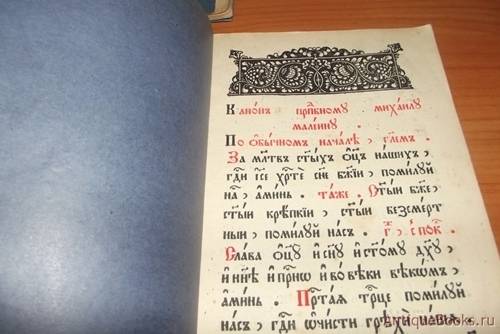 Канонъ прп҃бному михаилу
малеину .
По ѻ҆бычномъ началѣ , гл҃емъ .
За мл҃твъ ст҃ыхъ ѻ҆ц҃ъ нашихъ ,
гд҃и і҆с҃е хрⷭ҇те сн҃е бж҃іи , помилуй
на́съ , а҆минь . та́же . Ст҃ыи бж҃е ,
ст҃ыи крѣпкіи , ст҃ыи безсмерт
ныи , помилуй насъ . г҃ , с пок҇ .
Слава ѻ҆ц҃у и҆ сн҃у и҆ ст҃ому дх҃у ,
и҆ нн҃ѣ и҆ прⷭ҇но и҆ во вѣки вѣкомъ ,
а҆минь . Прⷭ҇тая трⷪ҇це помилуй
насъ , гд҃и ѡ҆чисти грѣхи наша .
antiqueBooks.ru